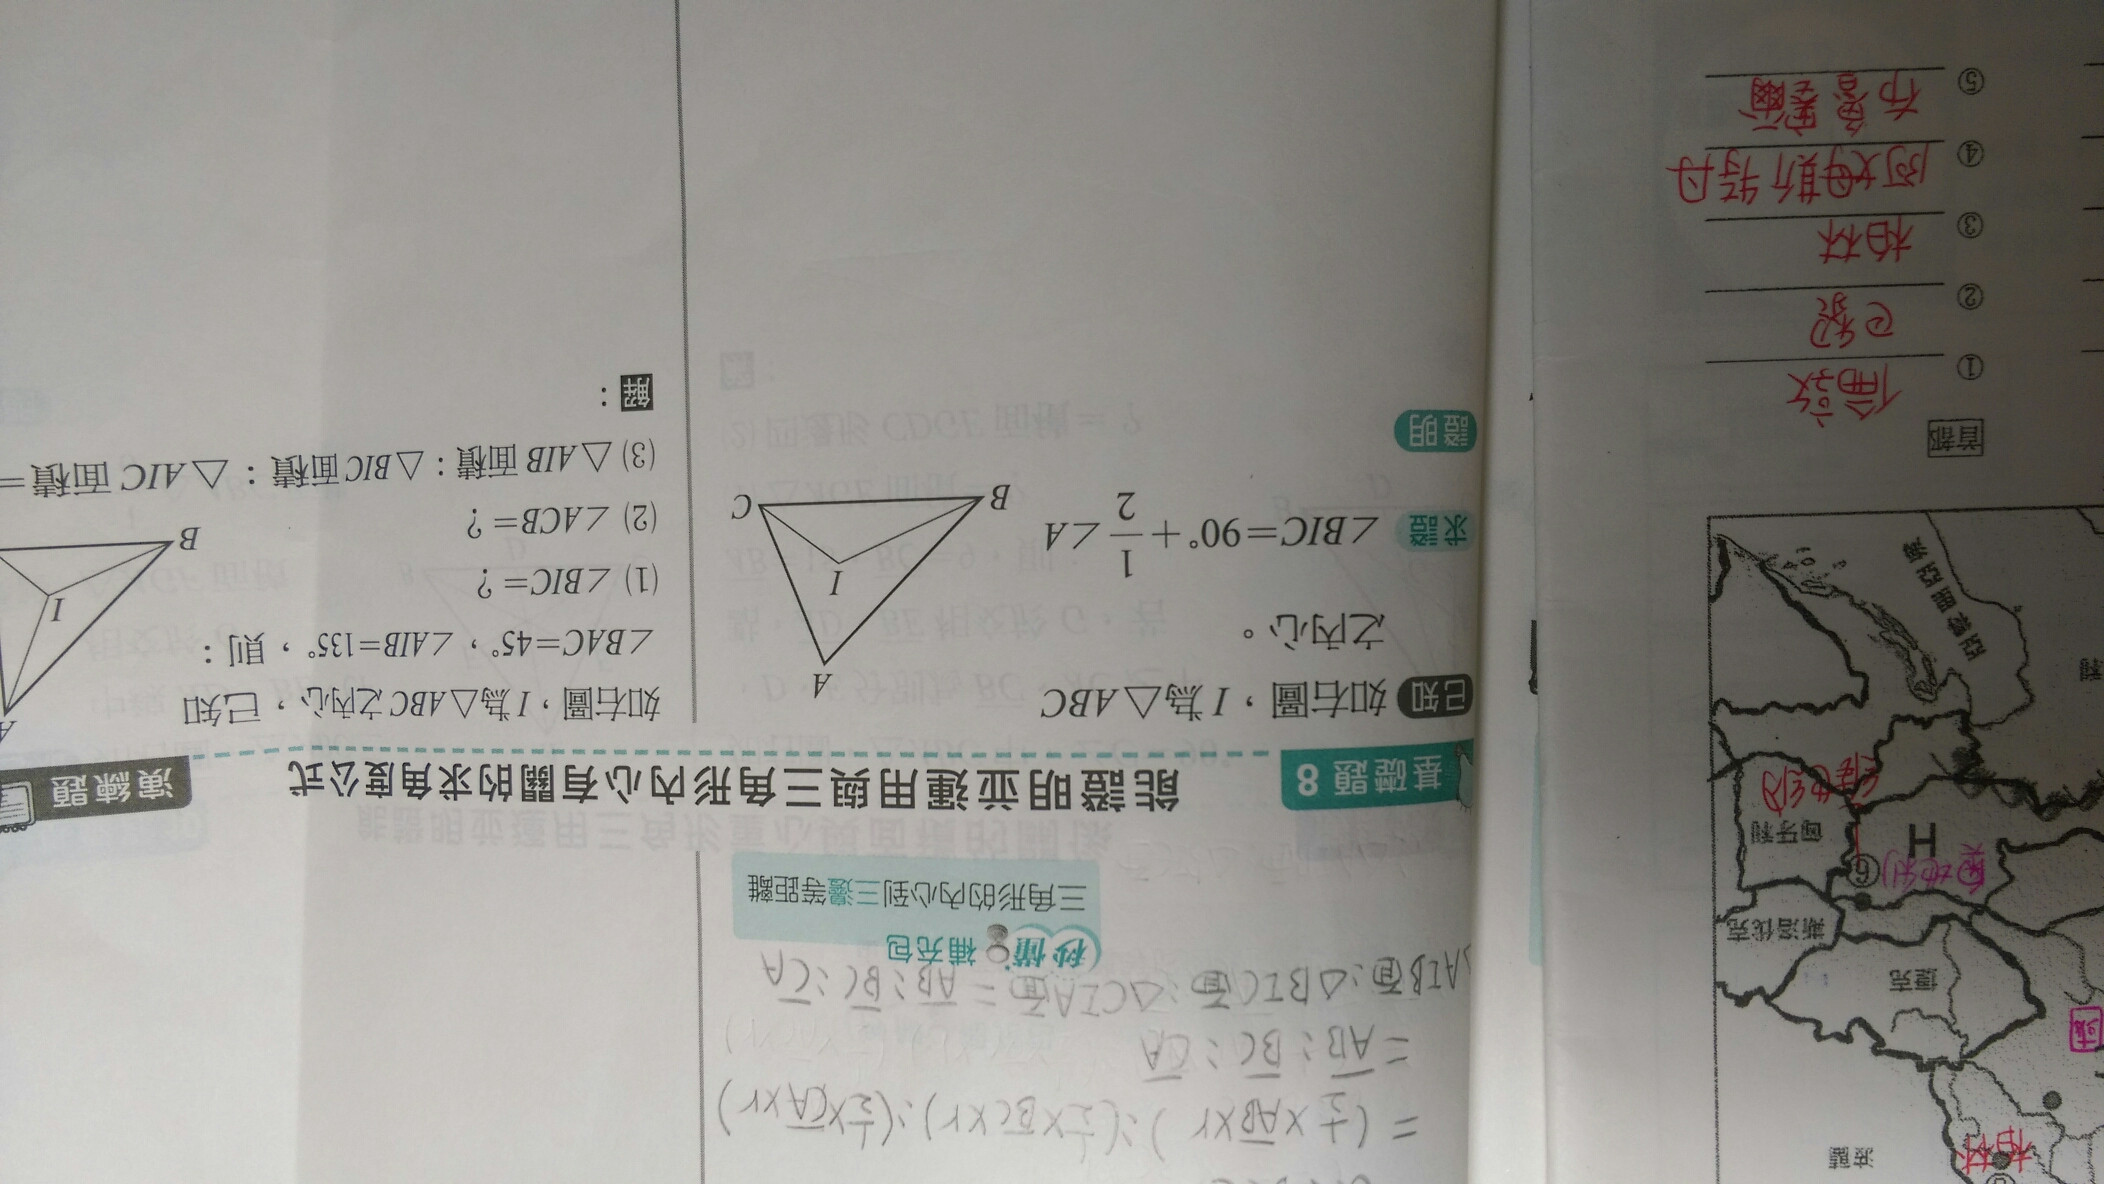 = (½×AB×r):(½×BC×r):(½×CA×r)
= AB:BC:CA
△AIB面:△BIC面:△CIA面=AB:BC:CA
秒懂 補充包
三角形的內心到三邊等距離
基礎題 8 能證明並運用與三角形內心有關的求角度公式
已知 如右圖,I為△ABC
之內心。
求證 ∠BIC=90°+1/2∠A
A
I
B
C
證明
演練題
如右圖,I為△ABC之內心,已知
∠BAC=45°,∠AIB=135°,則:
(1) ∠BIC=?
(2) ∠ACB=?
(3) △AIB面積:△BIC面積:△AIC面積=
A
I
B
解:
波蘭
柏林
捷克
斯洛伐克
⑥
奧地利
H
匈牙利
維也納
亞得里亞海
利
首都
① 倫敦
② 巴黎
③ 柏林
④ 阿姆斯特丹
⑤ 布魯塞爾